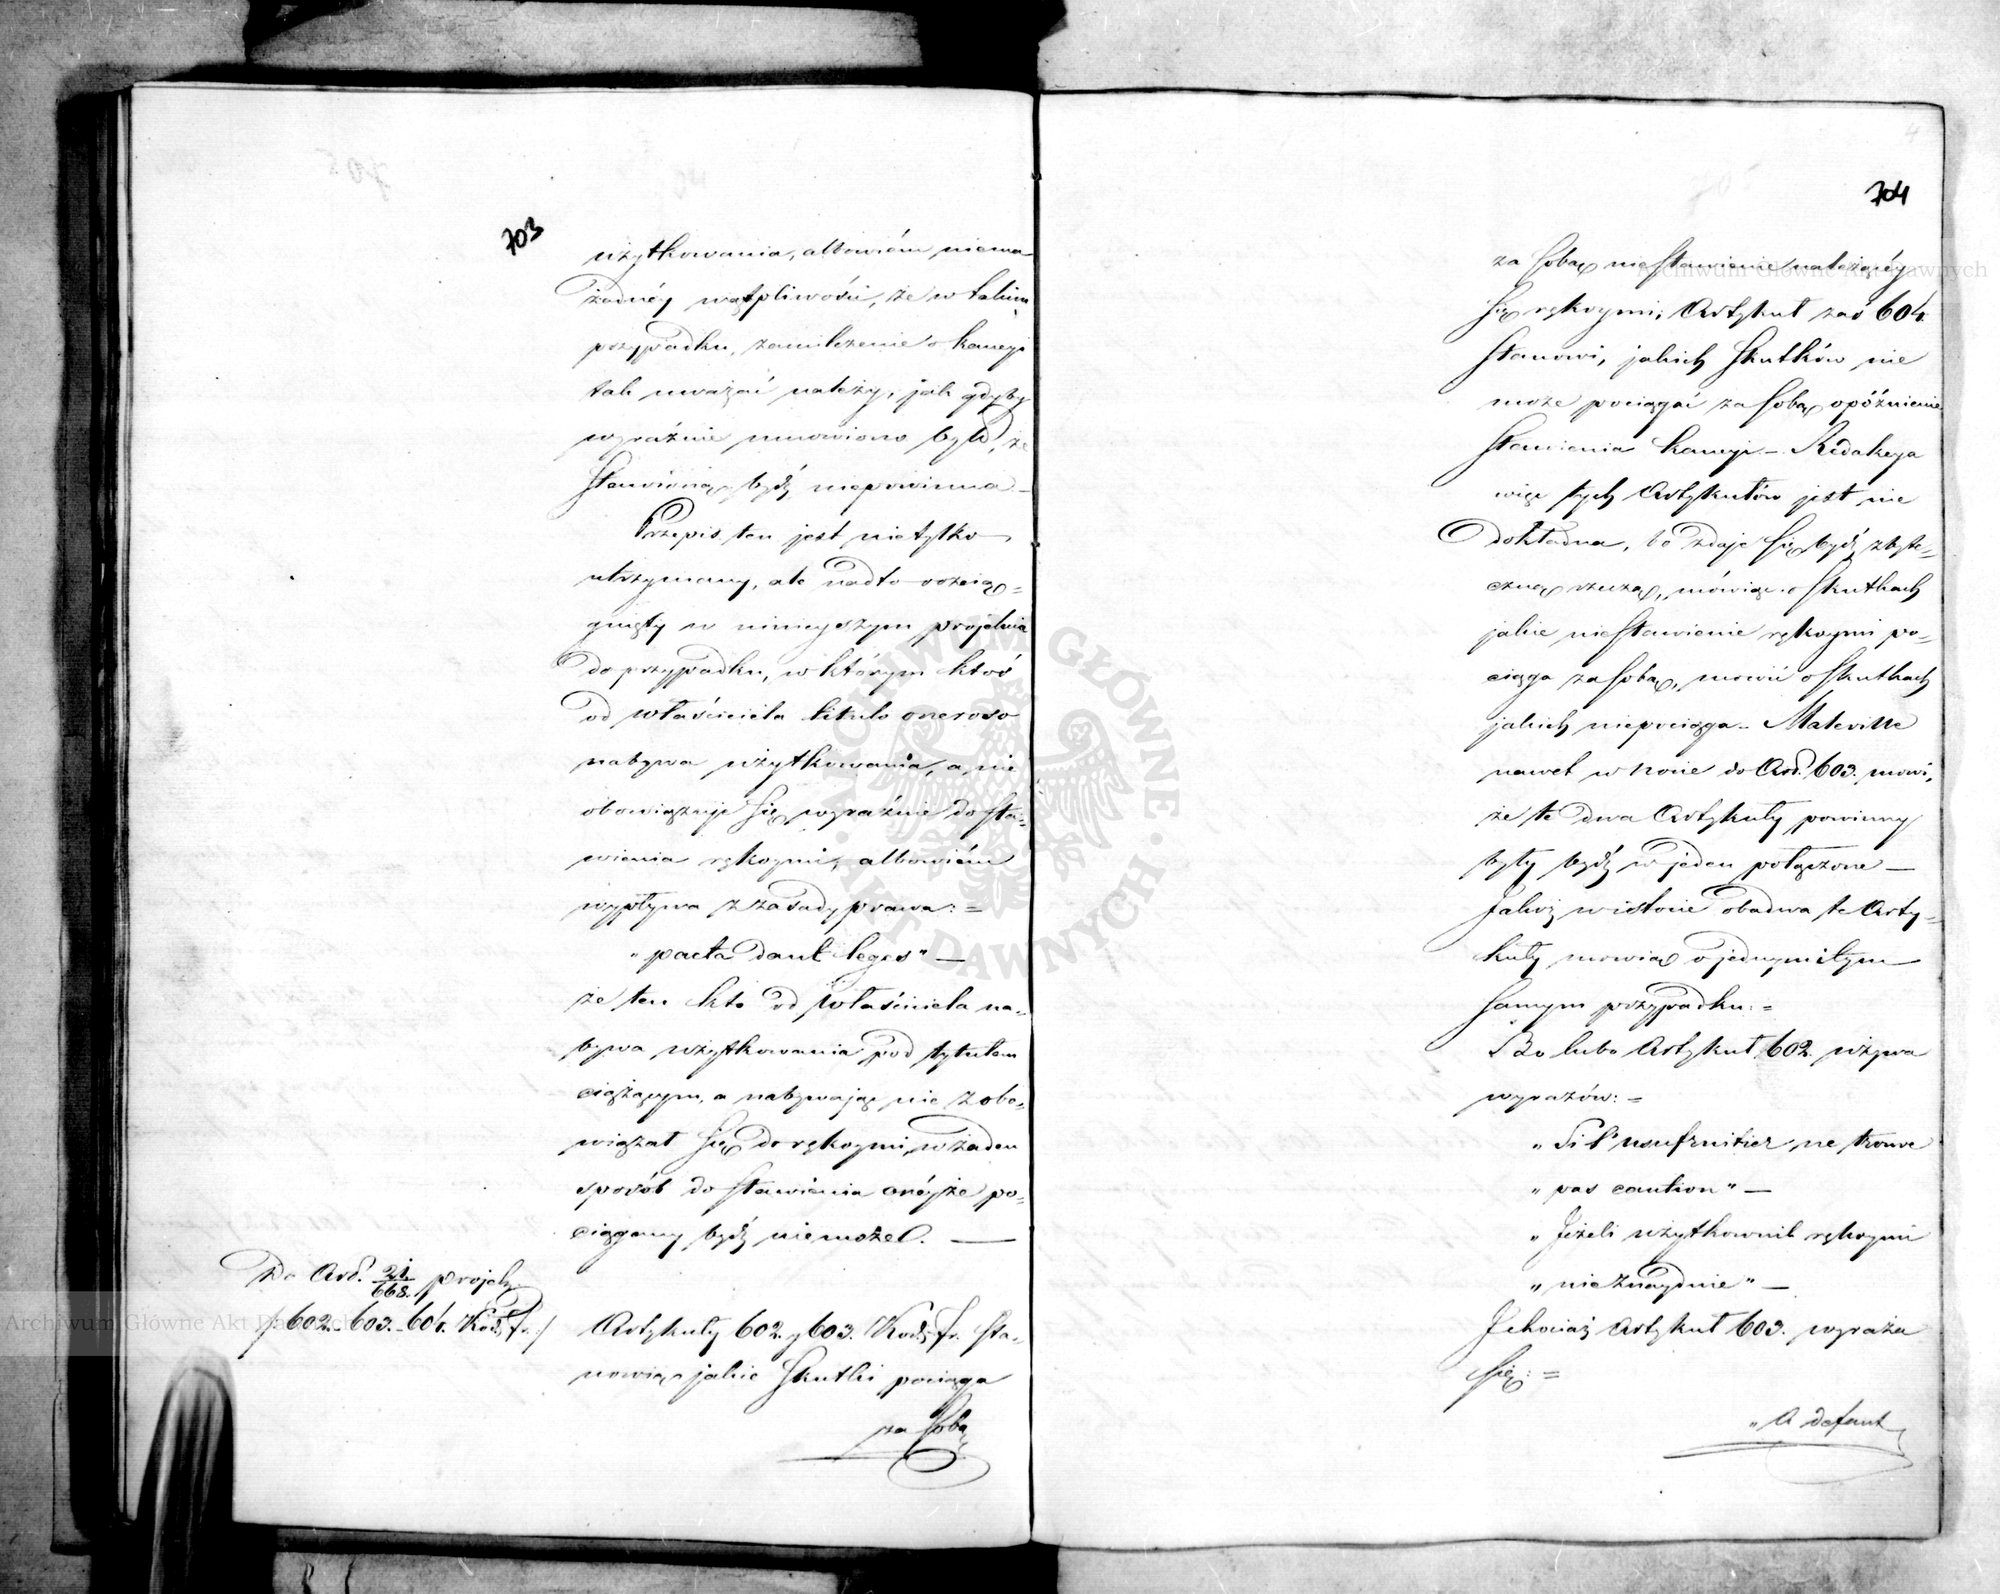 703
użytkowania, albowiém niema
żadnéy wątpliwości, że w takim
przypadku, zamilczenie o kaucyi
tak uważać należy, jak gdyby
wyraźnie umowiono było, że
stawioną bydź niepowinna –
Przepis ten jest nietylko
utrzymany, ale nadto rozcią=
gnięty w ninieyszym projekcie
do przypadku, w którym ktoś
od właściciela titulo oneroso
nabywa użytkowania, a nie
obowiązuje się wyraźnie do sta=
wienia rękoymi, albowiém
wypływa z zasady prawa: =
"pacta dant leges" —
że ten kto od Właściciela na=
bywa użytkowania pod tytułem
ciążącym, a nabywając nie zobo=
wiązał się do rękoymi, w żaden
sposób do stawienia onéyże po=
ciągany bydź niemoże. —
Do Art. 21/668. projek.
/602. 603. 604. Kod. fr:/
Artykuły 602. y 603. Kod. fr. sta=
nowiąc jakie skutki pociąga
za sobą
4
704
za sobą niestawienie należącéy
się rękoymi; Artykuł zaś 604.
stanowi, jakich skutków nie
może pociągać za sobą opóźnienie
stawienia kaucyi – Redakcya
więc tych Artykułów jest nie
dokładna, bo zdaje się bydź zbyte=
czną rzeczą, mówiąc o skutkach
jakie niestawienie rękoymi po=
ciąga za sobą, mowić o skutkach
jakich niepociąga – Maleville
nawet w nocie do Art. 603. mowi,
że te dwa Artykuły powinny
były bydź w jeden połączone —
Jakoż w istocie obadwa te Arty=
kuły mowią o jednym i tym
samym przypadku: =
Bo lubo Artykuł 602. używa
wyrazów: =
"Si l'usufruitier ne trouve
"pas caution" —
"Jeżeli użytkownik rękoymi
"nieznaydzie" —
I chociaż Artykuł 603. wyraża
się: =
"A defaut
Archiwum Główne Akt Dawnych
Archiwum Główne Akt Dawnych
ARCHIWUM GŁÓWNE · AKT DAWNYCH ·